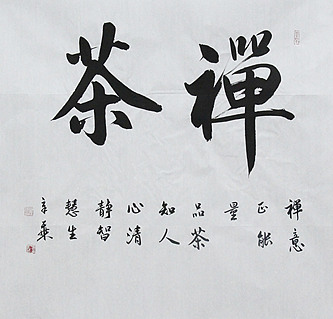 禪茶
禪意
正能
量
品茶
知人
心清
静智
慧生